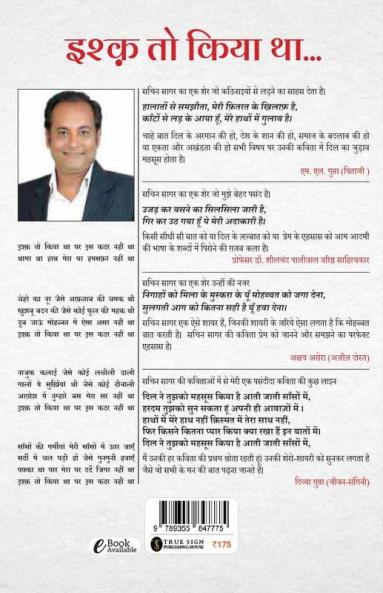 इश्क़ तो किया था...
सचिन सागर का एक शेर जो कठिनाइयों से लड़ने का साहस देता है।
हालातों से समझौता, मेरी फ़ितरत के खिलाफ़ है,
काँटों से लड़ के आया हूँ, मेरे हाथों में गुलाब है।
चाहे बात दिल के अरमान की हो, देश के शान की हो, समाज के बदलाव की हो
या एकता और अखंडता की हो सभी विषय पर उनकी कविता में दिल का जुड़ाव
महसूस होता है।
एम. एल. गुप्ता (पिताजी )
सचिन सागर का एक शेर जो मुझे बेहद पसंद है।
उजड़ कर बसने का सिलसिला जारी है,
गिर कर उठ गया हूँ ये मेरी अदाकारी है।
किसी सीधी सी बात को या दिल के जज़्बात को या प्रेम के एहसास को आम आदमी
की भाषा के शब्दों में पिरोने की ग़ज़ब कला है।
प्रोफेसर डॉ. शीलचंद पालीवाल वरिष्ठ साहित्यकार
सचिन सागर का एक शेर उन्हीं की नजर
निगाहों को मिला के मुस्करा के यूँ मोहब्बत को जगा देना,
सुलगती आग को कितना सही है यूँ हवा देना।
सचिन सागर एक ऐसे शायर हैं, जिनकी शायरी के जरिये ऐसा लगता है कि मोहब्बत
बात करती है। सचिन सागर की कविता प्रेम को जानने और समझने का परफेक्ट
एहसास है।
अक्षय अरोरा (अज़ीज दोस्त)
सचिन सागर की कविताओं में से मेरी एक पसंदीदा कविता की कुछ लाइन
दिल ने तुझको महसूस किया है आती जाती साँसों में,
हरदम तुझको सुन सकता हूँ अपनी ही आवाज़ों में ।
हाथों में मेरे हाथ नहीं क़िस्मत में तेरा साथ नहीं,
फिर किसने कितना प्यार किया क्या रखा हैं इन बातों में।
दिल ने तुझको महसूस किया है आती जाती साँसों में,
में उनकी हर कविता की प्रथम श्रोता रहती हूं। उनकी शेरो-शायरी को सुनकर लगता है
जैसे वो सभी के मन की बात पढ़ना जानते है।
दिव्या गुप्ता (जीवन-संगिनी)
इश्क़ तो किया था पर इस कदर नहीं था
थामा था हाथ मेरा पर हमसफ़र नहीं था
चेहरे का नूर जैसे आफ़ताब की चमक थी
खुशबू बदन की जैसे कोई फूल की महक थी
डूब जाऊं मोहब्बत में ऐसा असर नहीं था
इश्क़ तो किया था पर इस कदर नहीं था
नाजुक कलाई जैसे कोई लचीली डाली
गालों पे सुर्खियां थी जैसे कोई दीवाली
आग़ोश में तुम्हारे बस मेरा सर नहीं था
इश्क़ तो किया था पर इस कदर नहीं था
साँसों की गर्मीयां मेरी साँसों में उतर जाएँ
सर्दी में चल पड़ी हों जैसे गुनगुनी हवाएँ
पक्का था यार मेरा पर दर्दे जिगर नहीं था
इश्क़ तो किया था पर इस कदर नहीं था
9 789355 847775
eBook Available
TRUE SIGN
PUBLISHING HOUSE
₹175